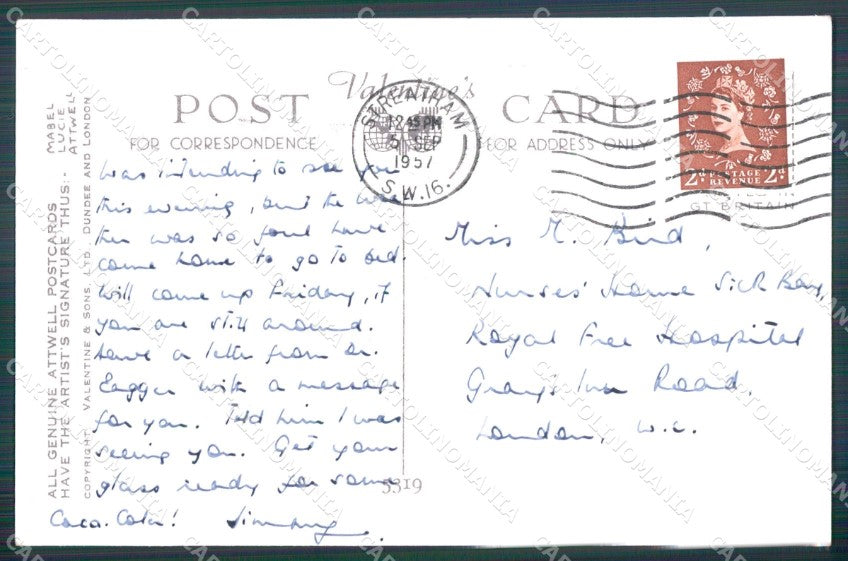 Valentine's
POST CARD
FOR CORRESPONDENCE
FOR ADDRESS ONLY
STREATHAM
12 45 PM
5 SEP
1957
S.W.16.
2D POSTAGE REVENUE 2D
GT BRITAIN
was intending to see you
this evening, but the wea
ther was so foul have
come home to go to bed.
Will come up Friday, if
you are still around.
have a letter from Dr.
Eagger with a message
for you. Told him I was
seeing you. Get your
glass ready for some
Coca-Cola!
Miss M. Bird,
Nurses' Home Sick Bay,
Royal Free Hospital
Gray's Inn Road,
London, W.C.
5319
ALL GENUINE ATTWELL POSTCARDS
HAVE THE ARTIST'S SIGNATURE THUS:-
MABEL
LUCIE
ATTWELL
COPYRIGHT. VALENTINE & SONS. LTD. DUNDEE AND LONDON
CARTOLINOMANIA